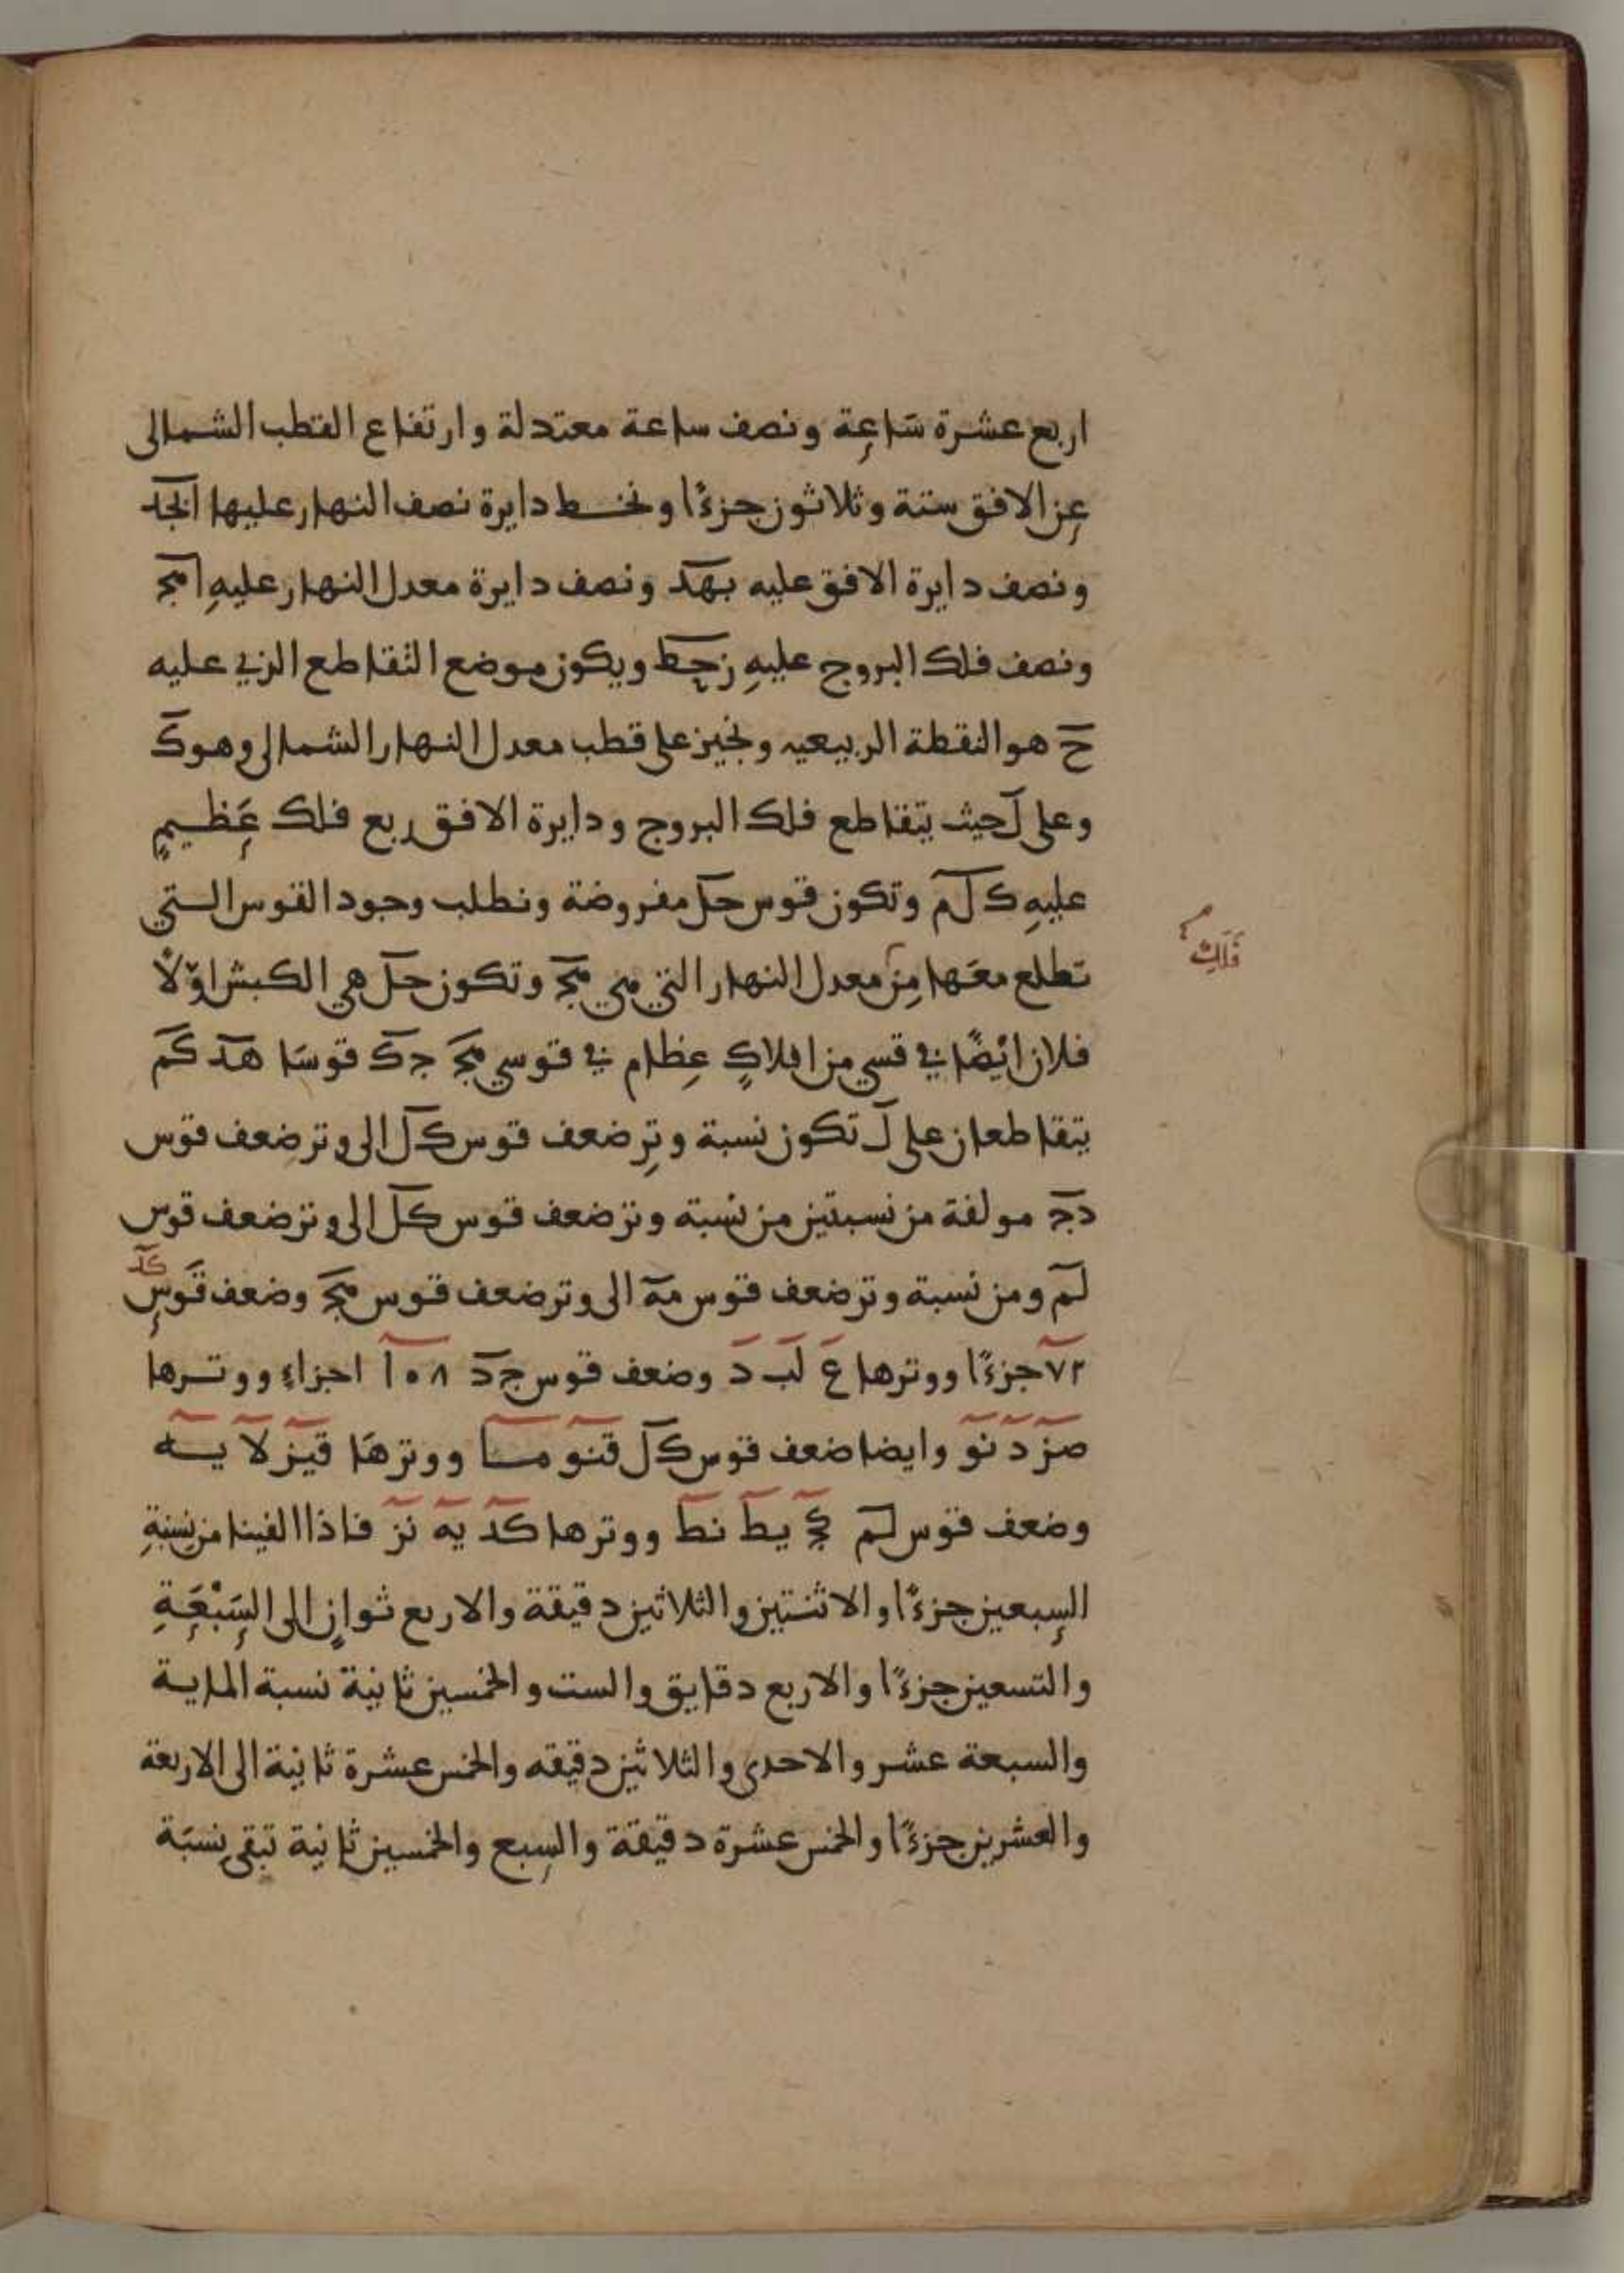 اربع عشرة سَاعِة ونصف ساعة معتدلة وارتفاع القطب الشمالى
عِن الافق ستة وثلاثون جزءًا ونخط دايرة نصف النهار عليها ابجد
ونصف دايرة الافق عليه بهد ونصف دايرة معدل النهار عليهِ امج
ونصف فلك البروج عليهِ زحط ويكون موضع التقاطع الذي عليه
ح هو النقطة الربيعيه ونجيز على قطب معدل النهار الشمالى وهو ك
وعلى ل حيث يتقاطع فلك البروج ودايرة الافق ربع فلك عَظيمٍ
عليهِ ك ل م وتكون قوس حل مفروضة ونطلب وجود القوس التي
تطلع معَها مِن معدل النهار التي هي مح وتكون حل هي الكبش اوّلاً
فَلَكِ
فلان ايْضًا في قسي من افلاكٍ عِظام في قوسي مج جك قوسَا هد كم
يتقاطعان على ل تكون نسبة وتِر ضعف قوس كل الى وتر ضعف قوس
دج مولفة من نسبتين من نسْبة وتر ضعف قوس كل الى وتر ضعف قوس
لم ومن نسبة وتر ضعف قوس مه الى وتر ضعف قوس مج وضعف قَوسِ كد
٧٢ جزءًا ووترها ع لب د وضعف قوس جد ١٠٨ اجزاءِ ووترها
صز د نو وايضا ضعف قوس كل قنو ما ووترهَا قيز لا يه
وضعف قوس لم كج يط نط ووترها كد يه نز فاذا القينا من نسبةِ
السِبعين جزءًا والاثنتين والثلاثين دقيقة والاربع ثوانٍ الى السَِبْعَِةِ
والتسعين جزءًا والاربع دقايق والست والخمسين ثانية نسبة الماية
والسبعة عشر والاحدى والثلاثين دقيقه والخمس عشرة ثانية الى الاربعة
والعشرين جزءًا والخمس عشرة دقيقة والسِبع والخمسين ثانية تبقى نسبَة